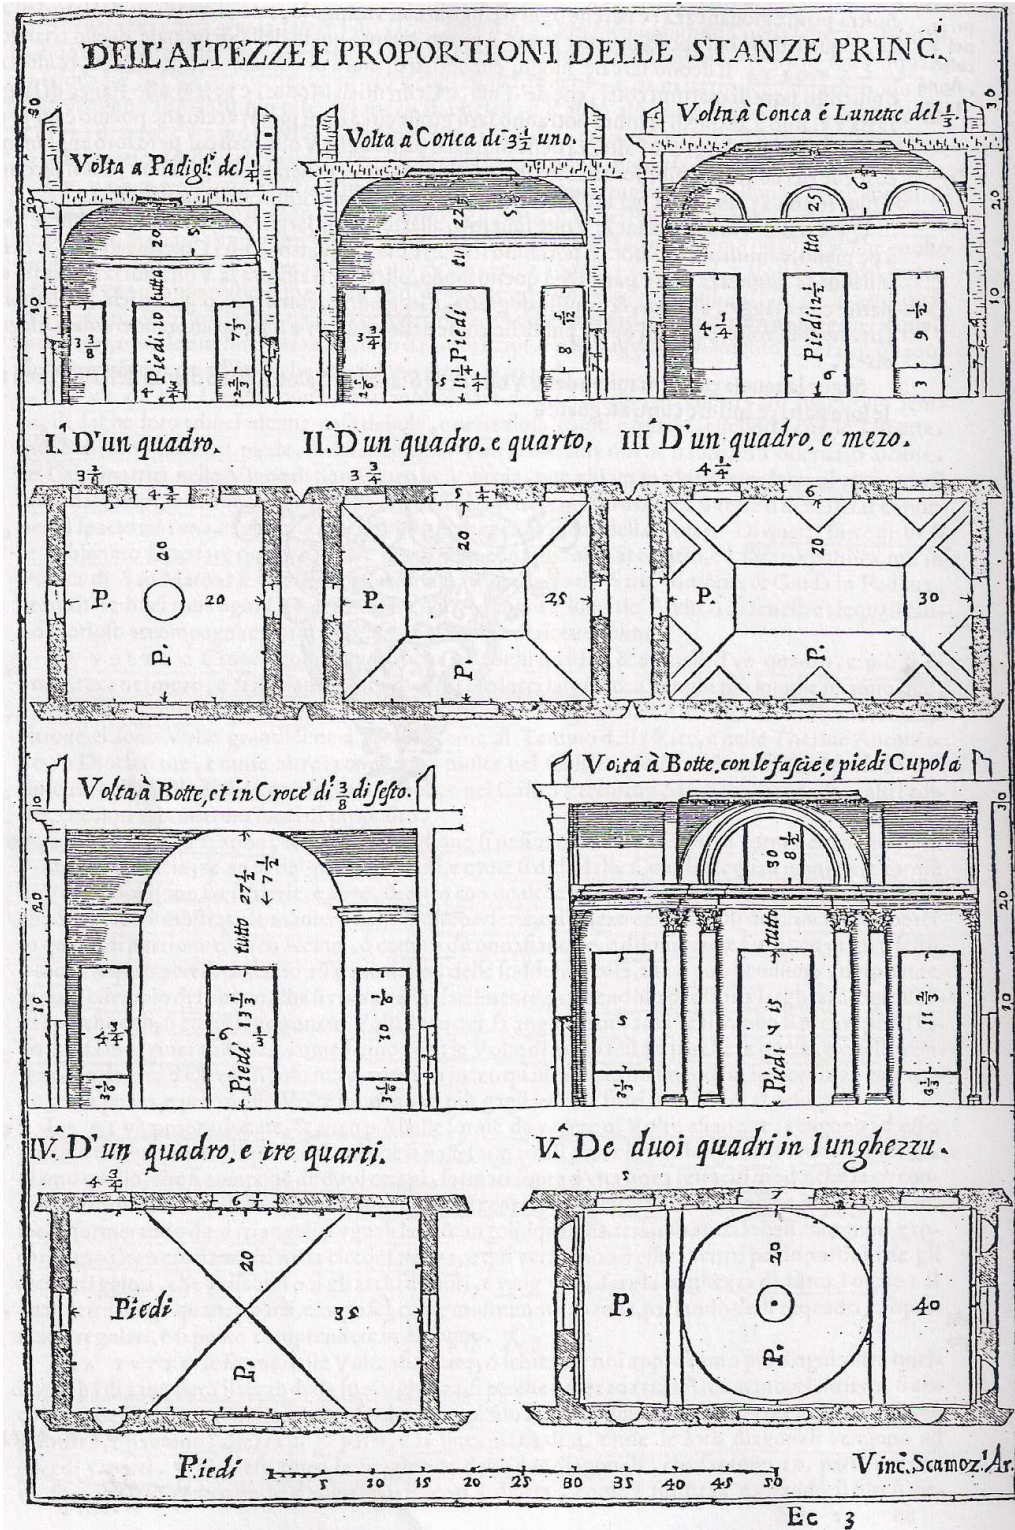 DELL'ALTEZZE E PROPORTIONI DELLE STANZE PRINC.
Volta a Padigl. del 1/4
Volta à Conca di 3 1/2 uno.
Volta à Conca é Lunette del 1/3.
30
20
10
20
5
Piedi. 10 tutta
3 3/8
4 3/4
7 1/3
2 2/3
22 1/2
5
Piedi
11 1/4
3 3/4
5 1/4
8 5/12
25
6 1/4
Piedi 12 1/2
4 1/4
6
9 1/2
3
7
30
20
10
I. D'un quadro.
II. D'un quadro, e quarto,
III. D'un quadro, e mezo.
4 3/4
20
P.
20
P.
3 3/4
5 1/4
20
P.
25
P.
4 1/4
6
20
P.
30
P.
Volta à Botte, et in Croce di 3/8 di sesto.
Volta à Botte, con le fascie, e piedi Cupola
10
20
10
7 1/2
Piedi 13 tutto 27 1/2
4 3/4
6 1/3
10 1/6
3 1/6
3 1/6
8
8 1/2
Piedi 15 tutto 30
5
3 1/3
7
11 2/3
30
20
10
IV. D'un quadro, e tre quarti.
V. De duoi quadri in lunghezzu.
4 3/4
6 1/3
20
Piedi
35
P.
5
7
20
P.
40
P.
Piedi
5 10 15 20 25 30 35 40 45 50
Vinc. Scamoz. Ar.
Ec 3